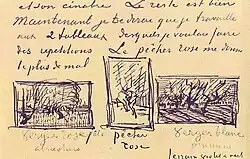 et son cinabre. Le reste est bien
Maintenant je te dirai que je travaille
aux 2 tableaux desquels je voulais faire
des repetitions Le pêcher rose me donne
le plus de mal
verger rose
abricotiers
pêcher
rose
verger blanc
pruniers